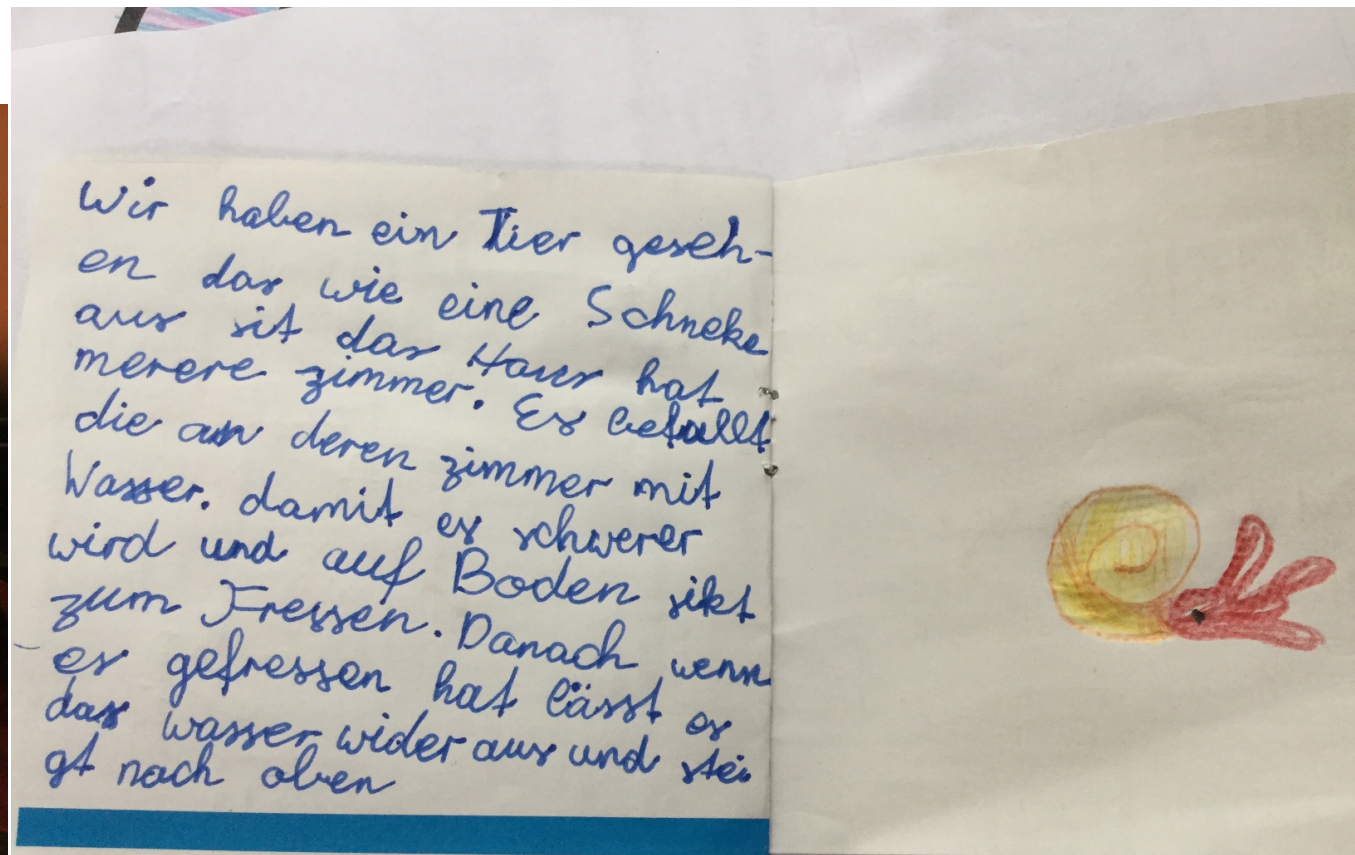 Wir haben ein Tier geseh-
en das wie eine Schneke
aus sit das Haus hat
merere zimmer. Es befallt
die an deren zimmer mit
Wasser. damit es schwerer
wird und auf Boden sikt
zum Fressen. Danach wenn
es gefressen hat lässt es
das wasser wider aus und stei
gt nach oben